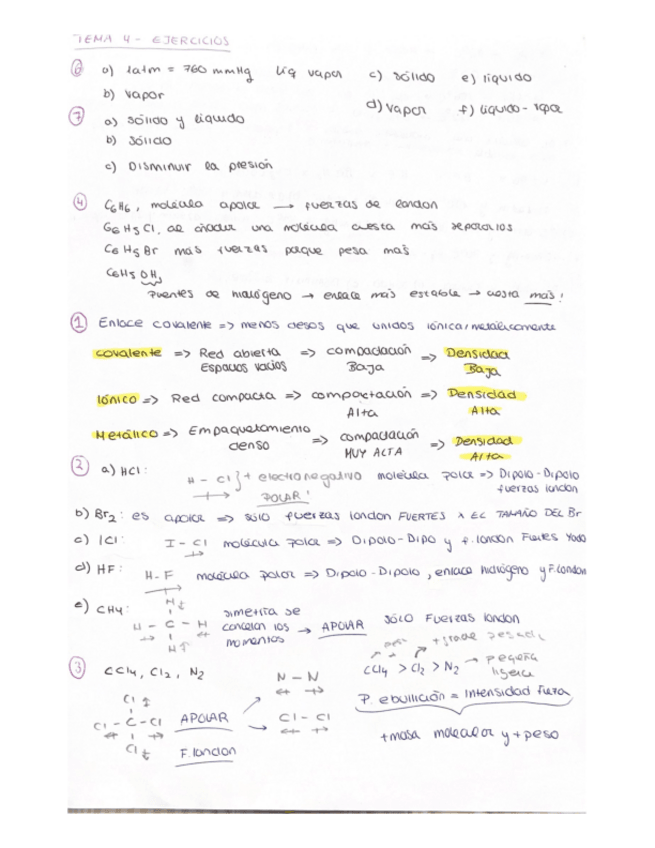 TEMA 4 - EJERCICIOS
6 a) 1atm = 760 mmHg líq vapor c) sólido e) líquido
b) vapor d) vapor f) líquido-
7 a) sólido y líquido
b) sólido
c) Disminuir la presión
4 C6H6, molécula apolar → fuerzas de london
C6H5Cl, al añadir una molécula cuesta más separarlos
C6H5Br más fuerzas porque pesa más
C6H5OH,
Puentes de hidrógeno → enlace más estable → cuesta más!
1 Enlace covalente => menos densos que unidos iónica/metálicamente
covalente => Red abierta => compactación => Densidad
Espacios vacíos Baja Baja
Iónico => Red compacta => compactación => Densidad
Alta Alta
Metálico => Empaquetamiento => compactación => Densidad
denso MUY ALTA Alta
2 a) HCl: H - Cl } + electronegativo molécula polar => Dipolo-Dipolo
POLAR! fuerzas london
b) Br2: es apolar => sólo fuerzas london FUERTES x EL TAMAÑO DEL Br
c) ICl: I - Cl molécula polar => Dipolo-Dipo y f. london Fuertes Yodo
d) HF: H-F molécula polar => Dipolo-Dipolo, enlace hidrógeno y F. london
e) CH4: H
H - C - H
H
simetría se
cancelan los → APOLAR SÓLO Fuerzas london
momentos
3 CCl4, Cl2, N2 N - N CCl4 > Cl2 > N2 → pequeña
ligera
+ grande pesada
Cl
Cl - C - Cl APOLAR Cl - Cl
Cl F. london
P. ebullición = Intensidad fuerza
+ masa molecular y + peso